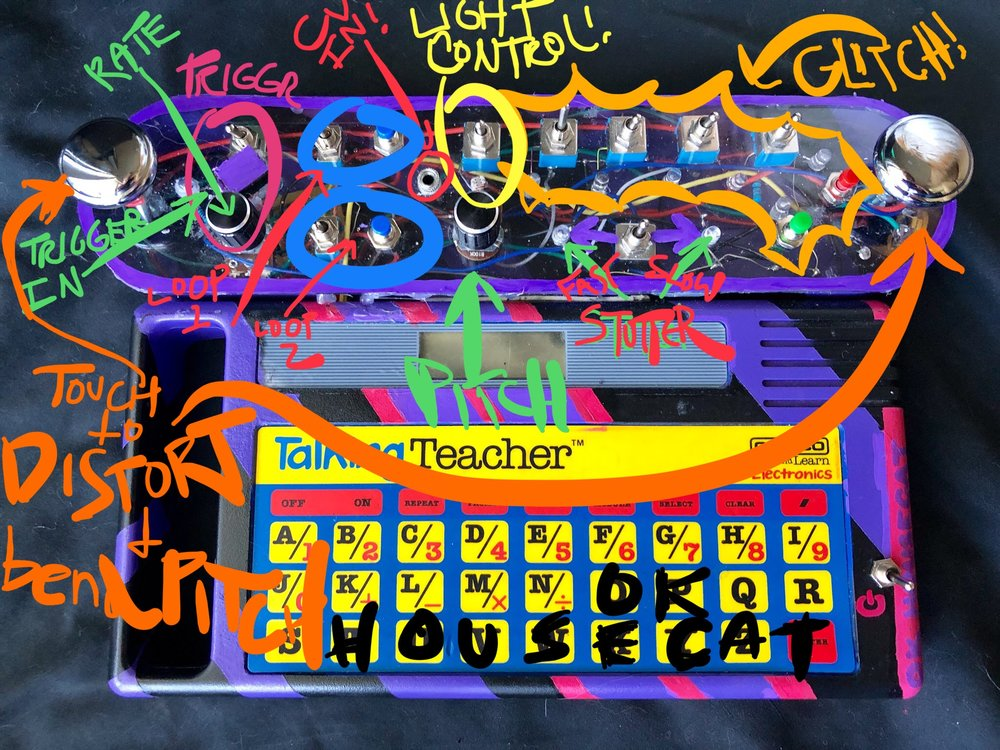 RATE
TRIGGR
LIGHT
CONTROL!
GLITCH!
TRIGGER
IN
LOOP
1
LOOP
2
FAST SLOW
STUTTER
PITCH
TOUCH
to
DISTORT
+
bend PITCH
Talking Teacher™
Learn
Electronics
OFF ON REPEAT SELECT CLEAR //
A/1 B/2 C/3 D/4 E/5 F/6 G/7 H/8 I/9
J/0 K/+ L/− M/× N/÷ Q R
OK
S
HOUSECAT
B100K